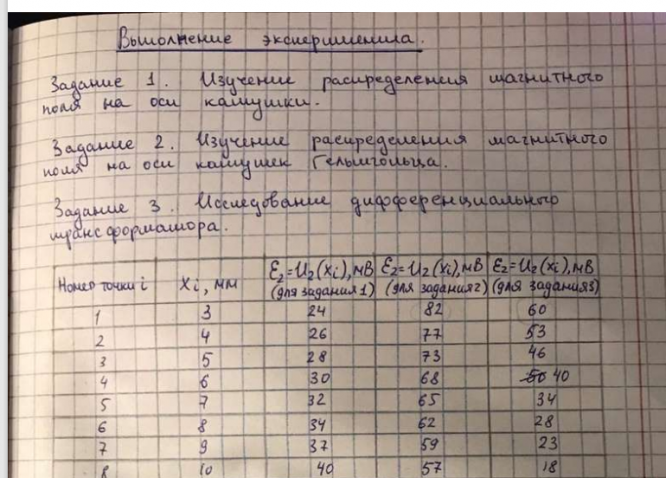 Выполнение эксперимента.
Задание 1. Изучение распределения магнитного
поля на оси катушки.
Задание 2. Изучение распределения магнитного
поля на оси катушек Гельмгольца.
Задание 3. Исследование дифференциального
трансформатора.
Номер точки i xi, мм Ɛ2=U2(xi), мВ (для задания 1) Ɛ2=U2(xi), мВ (для задания 2) Ɛ2=U2(xi), мВ (для задания 3)
1 3 24 82 60
2 4 26 77 53
3 5 28 73 46
4 6 30 68 50 40
5 7 32 65 34
6 8 34 62 28
7 9 37 59 23
8 10 40 57 18